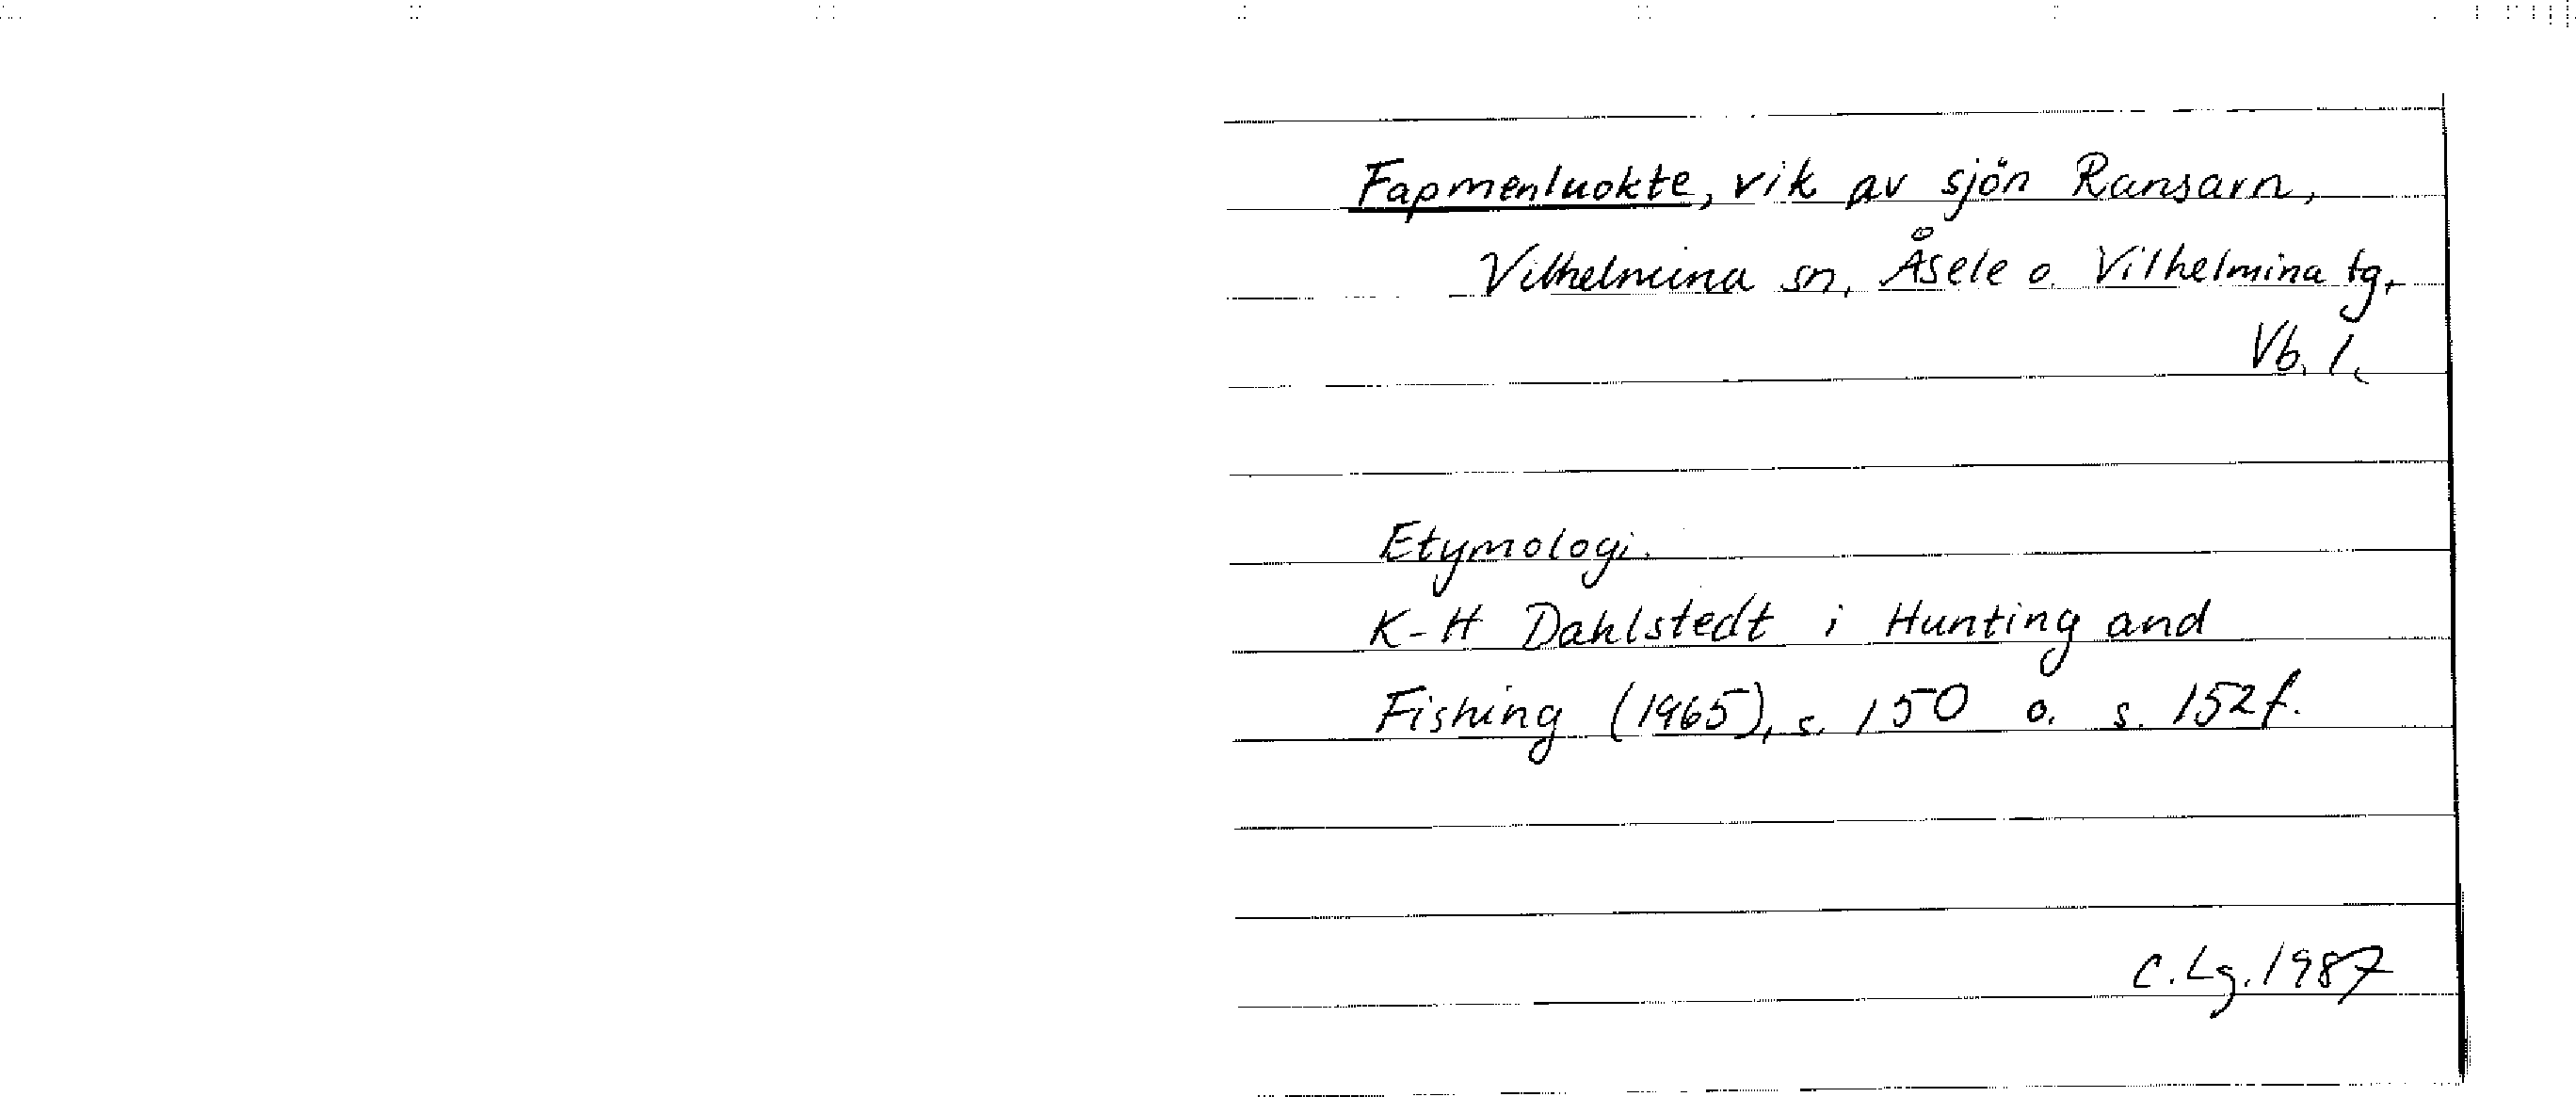 Fapmenluokte, vik av sjön Ransarn,
Vilhelmina sn, Åsele o. Vilhelmina tg.
Vb. l.
Etymologi.
K-H Dahlstedt i Hunting and
Fishing (1965), s. 150 o. s. 152f.
C. Lg. 1987